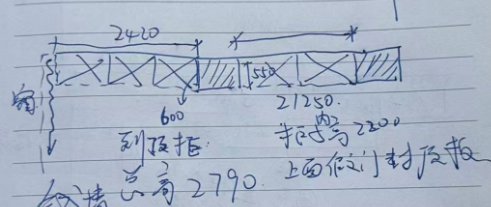 2420
550
600
21250.
到顶柜
内
柜高2200
上面假门封顶板
总高2790